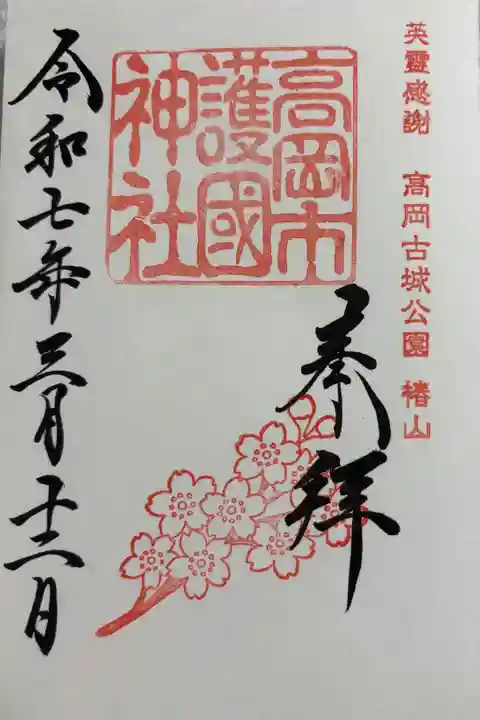 英霊感謝 高岡古城公園 椿山
奉拝
高岡市
護國
神社
令和七年三月十二日